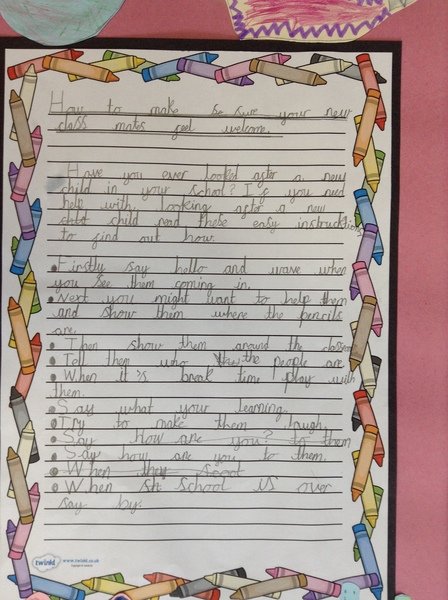 How to make be sure your new
class mates feel welcome.
Have you ever looked after a new
child in your school? If you need
help with looking after a new
child read these easy instructions
to find out how.
Firstly say hello and wave when
you see them coming in.
Next you might want to help them
and show them where the pencils
are.
Then show them around the classroom
Tell them who the people are
When it is break time play with
them.
Say what your learning.
Try to make them laugh.
Say how are you? to them
Say how are you to them.
When they
When school is over
say by.
twinkl www.twinkl.co.uk